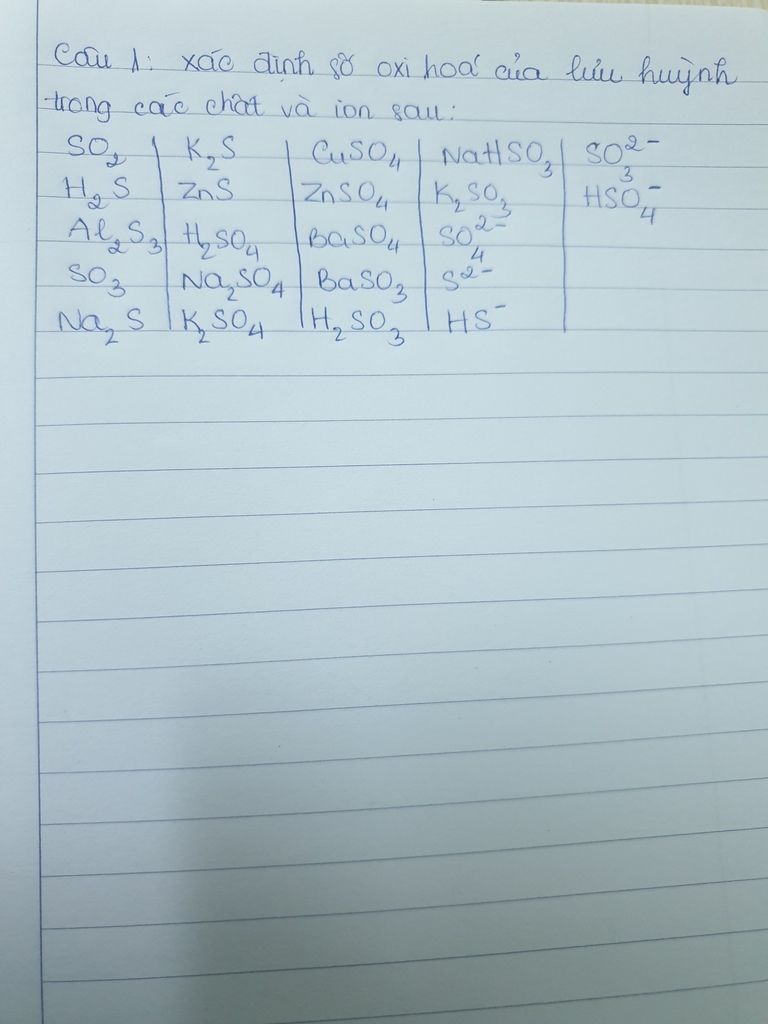 Câu 1: xác định số oxi hoá của lưu huỳnh
trong các chất và ion sau:
SO₂ | K₂S | CuSO₄ | NaHSO₃ | SO₃²⁻
H₂S | ZnS | ZnSO₄ | K₂SO₃ | HSO₄⁻
Al₂S₃ | H₂SO₄ | BaSO₄ | SO₄²⁻
SO₃ | Na₂SO₄ | BaSO₃ | S²⁻
Na₂S | K₂SO₄ | H₂SO₃ | HS⁻